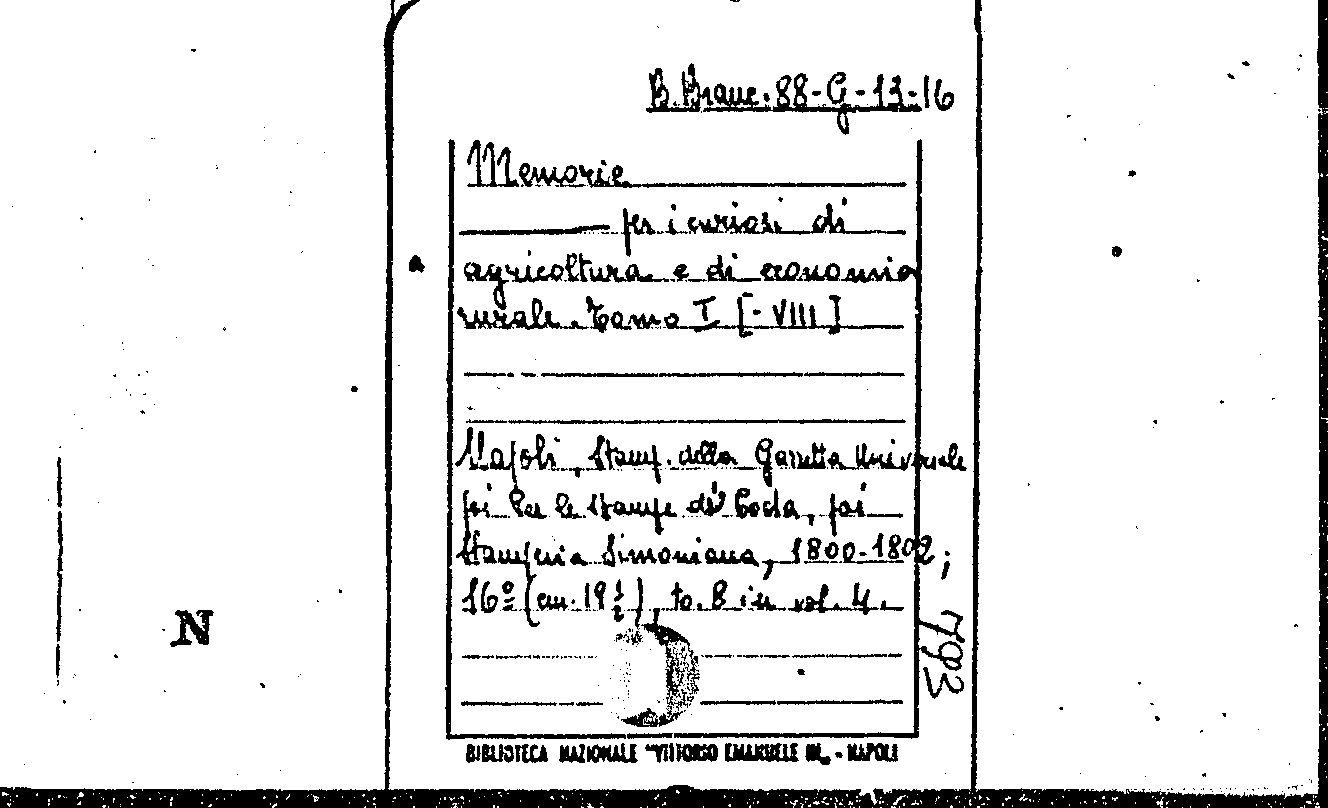 B. Branc. 88-G-13-16
Memorie
per i curiosi di
agricoltura e di economia
rurale. Tomo I [-VIII]
Napoli, Stamp. della Gazzetta Universale
poi Per le stampe di Coda, poi
Stamperia Simoniana, 1800-1802;
16º (cm. 19 ½), to. 8 in vol. 4.
793
N
BIBLIOTECA NAZIONALE "VITTORIO EMANUELE III" - NAPOLI